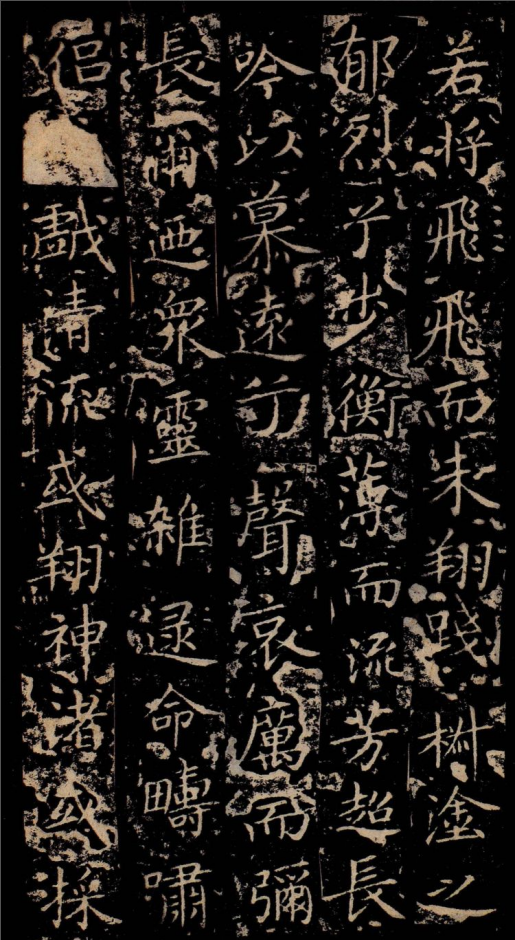 若将飛飛而未翔踐椒塗之
郁烈兮步衡薄而流芳超長
吟以慕遠兮聲哀厲而彌
長爾迺衆靈雜遝命疇嘯
侶戲清流或翔神渚或採